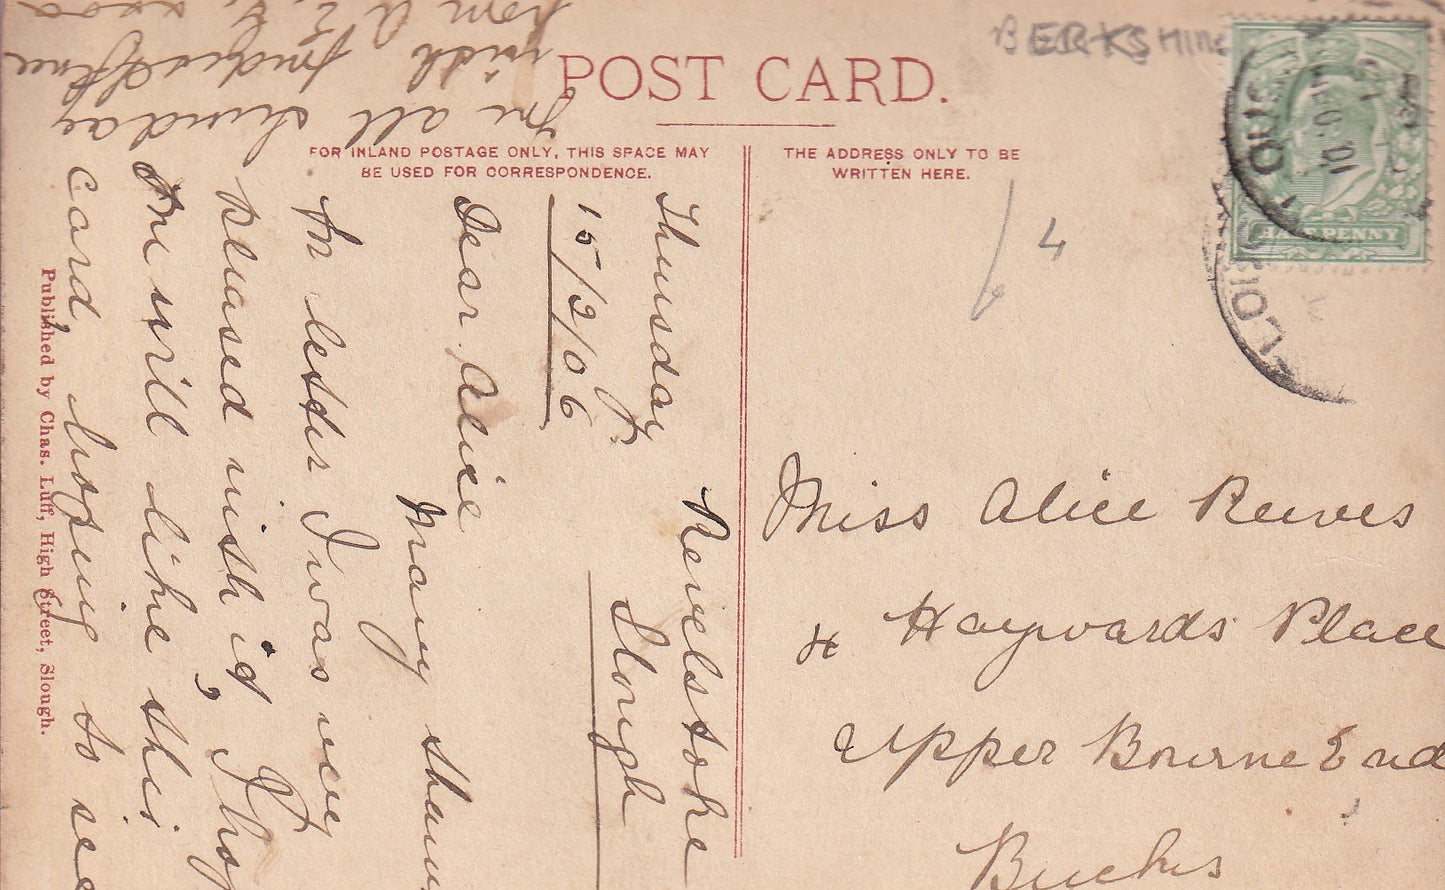 BERKSHIRE
POST CARD.
FOR INLAND POSTAGE ONLY, THIS SPACE MAY
BE USED FOR CORRESPONDENCE.
THE ADDRESS ONLY TO BE
WRITTEN HERE.
HALF PENNY
SLOUGH
4
Miss Alice Reeves
4 Haywards Place
Upper Bourne End
Bucks
Revelstoke
Slough
Thursday
15/2/06
Dear Alice
Many
letter I was very
pleased with it, I
will like this
card, hoping to see
all Sunday
with
from
Published by Chas. Luff, High Street, Slough.